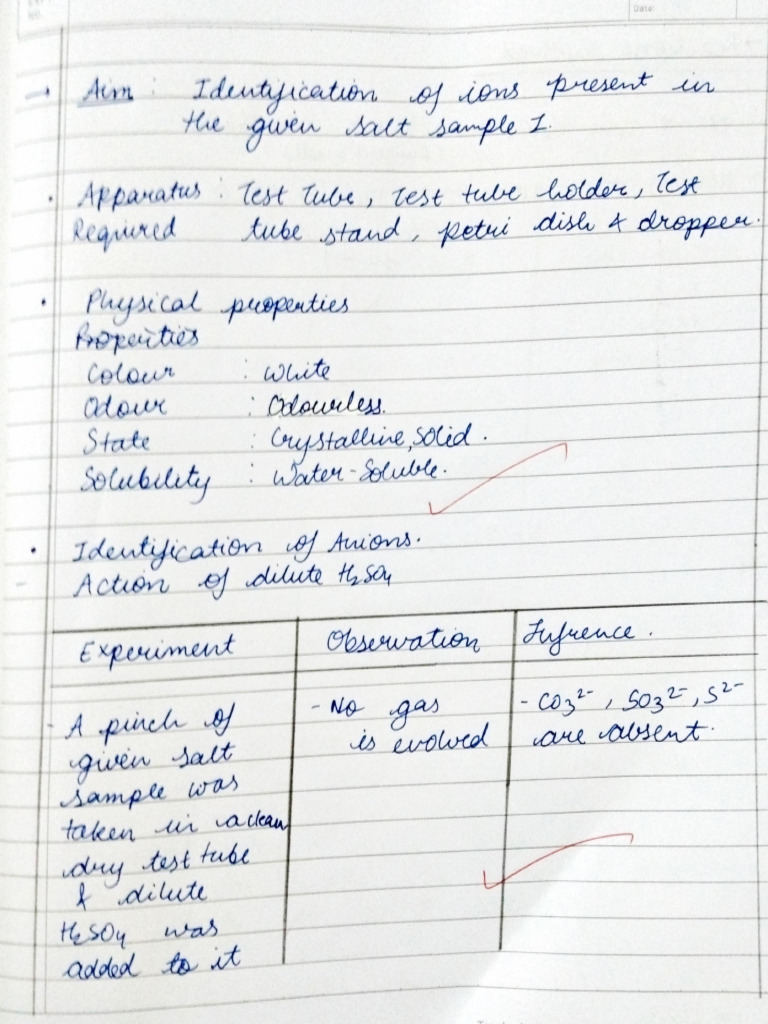 Date:
Aim : Identification of ions present in
the given salt sample I.
Apparatus : Test Tube, Test tube holder, Test
Required tube stand, petri dish & dropper.
Physical properties
Properties
Colour : White
Odour : Odourless.
State : Crystalline, Solid.
Solubility : Water-Soluble.
Identification of Anions.
Action of dilute H₂SO₄
Experiment Observation Infrence.
- A pinch of - No gas - CO₃²⁻, SO₃²⁻, S²⁻
given salt is evolved are absent.
sample was
taken in a clean
dry test tube
& dilute
H₂SO₄ was
added to it